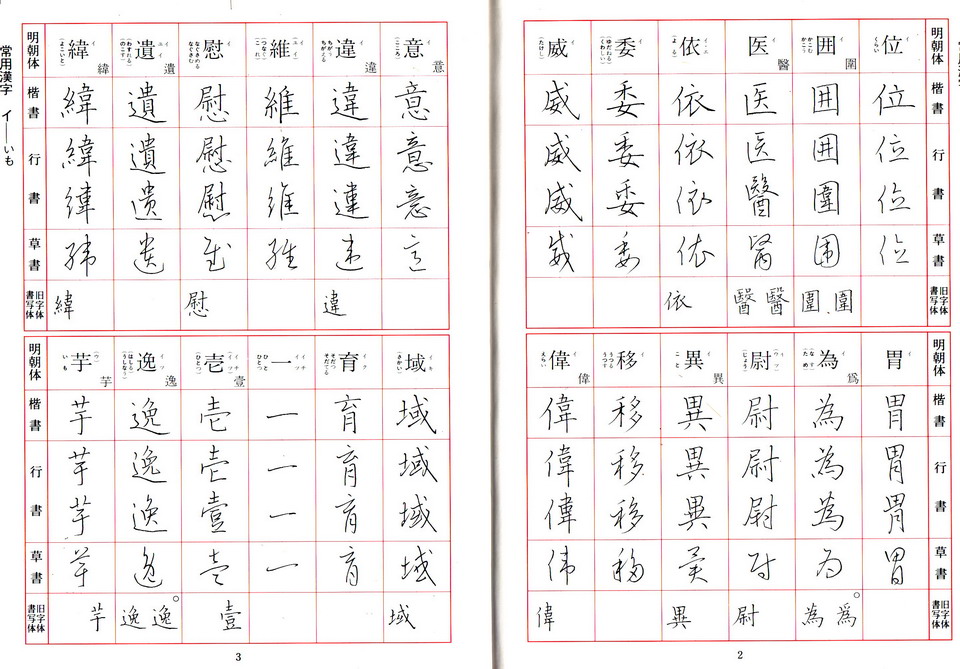 明朝体 楷書 行書 草書 旧字体 書写体
位 イ くらい 位 位 位 位
囲 圍 イ かこむ かこう 囲 囲 圍 囲 圍 圍
医 醫 イ 医 医 醫 醫 醫 醫
依 イ・エ (よる) 依 依 依 依 依
委 イ (ゆだねる) (くわしい) 委 委 委 委
威 イ (たけし) 威 威 威 威
明朝体 楷書 行書 草書 旧字体 書写体
胃 イ 胃 胃 胃 胃
為 爲 イ (なす) (ため) 為 為 為 為 為 爲
尉 イ (じょう) 尉 尉 尉 尉 尉
異 異 イ こと 異 異 異 異 異
移 イ うつる うつす 移 移 移 移
偉 偉 イ えらい 偉 偉 偉 偉 偉
2
明朝体 楷書 行書 草書 旧字体 書写体
意 意 イ (こころ) 意 意 意 意
違 違 イ ちがう ちがえる 違 違 違 違 違
維 イ (つなぐ) (これ) 維 維 維 維
慰 イ なぐさめる なぐさむ 慰 慰 慰 慰 慰
遺 遺 イ (わすれる) (のこす) 遺 遺 遺 遺
緯 緯 イ (よこいと) 緯 緯 緯 緯 緯
明朝体 楷書 行書 草書 旧字体 書写体
域 イキ (さかい) 域 域 域 域 域
育 イク そだつ そだてる 育 育 育 育
一 イチ イツ ひと ひとつ 一 一 一 一
壱 壹 イチ (ひとつ) 壱 壱 壹 壱 壹
逸 逸 イツ (はしる) (うしなう) 逸 逸 逸 逸 逸 逸
芋 芋 (ウ) いも 芋 芋 芋 芋 芋
3
常用漢字 イ──いも